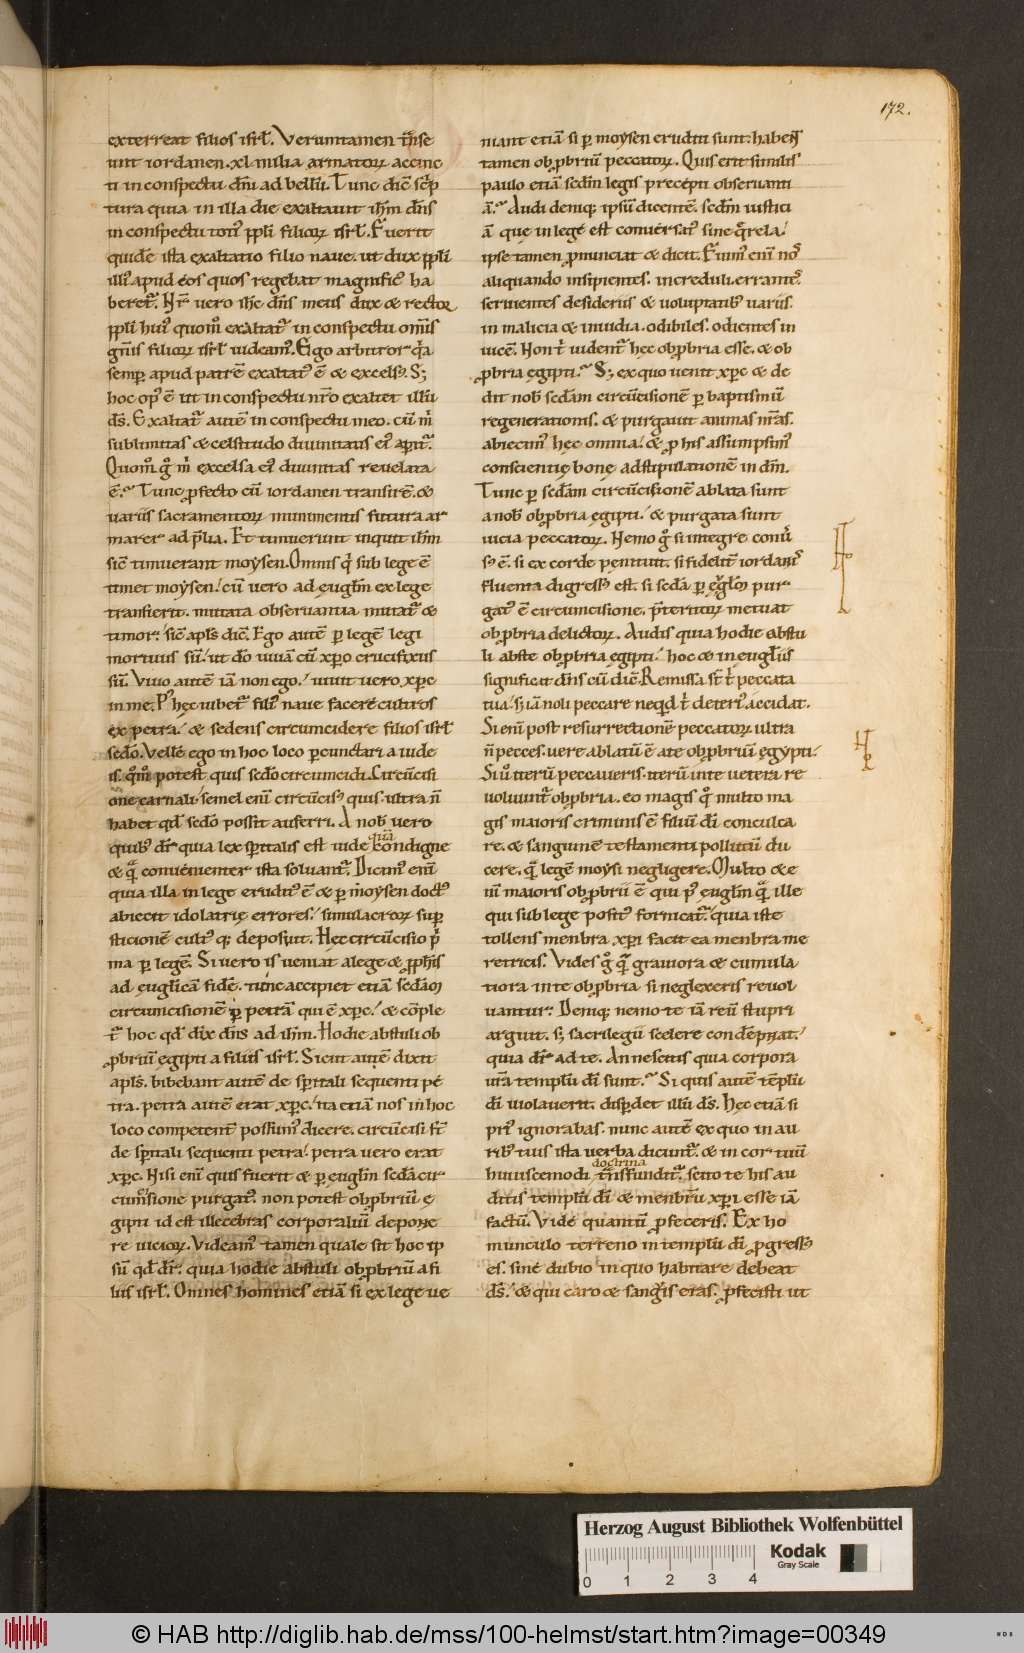 172.
exterreat filios isrł. Veruntamen t̃nsie
unt iordanen. xl. milia armatoꝝ accinc
ti in conspectu dn̄i ad bellū. Tunc dic̄ sc̄p
tura quia in illa die exaltauit ih̄m dn̄s
in conspectu toti᾿ ppłi filioꝝ isrł. Fuerit
quidē ista exaltatio filio naue. ut dux ppłi
illi᾿ apud eos quos regebat magnific᾿ ha
beret᷑. Nr̄ vero ih̄c dn̄s meus dux & rectoꝝ
ppłi hui᾿ quom̊ exaltat᷑ in conspectu om̄is
gn̄is filioꝝ isrł uideam᾿. Ego arbitror q̄a
semꝑ apud patrē exaltat᾿ ē & excels᾿. S;
hoc op᾿ ē ut in conspectu nr̄o exaltet illū
dſ̄. Exaltat᷑ autē in conspectu meo. cū m̍
sublimitas & celsitudo diuinitatis ei᾿ apit᷑.
Quom̊ g̊ m̍ excelsa ei᾿ diuinitas reuelata
ē? Tunc ꝓfecto cū iordanen transirē. &
uariis sacramentoꝝ munimentis futura ar
marer ad p̄lia. Et timuerunt inquit ih̄m
sic̄ timuerant moysen. Omnis q̍ sub lege ē
timet moysen. cū vero ad euglm̄ ex lege
transierit. mutata obseruantia mutat᷑ &
timor. sic̄ apłs dic̄. Ego autē ꝑ legē legi
mortuus sū. ut dō uiuā cū xp̄o crucifixus
sū. Viuo autē iā non ego. uiuit uero xp̄c
in me. P᾿ hęc iubet᷑ fili᾿ naue facere cultros
ex petra. & sedens circumcidere filios isrł
sedō. Vellē ego in hoc loco ꝑcunctari a iude
is. q̊m̊ potest quis sedo circumcidi. Circūcisi
one carnali semel enī circūcis᾿ quis. ultra n̄
habet qd̄ sedō possit auferri. A nob᾿ vero
quib᾿ dr̄ quia lex spiritalis est uide quā condigne
& q̄ conuenienter ista soluant᷑. Dicim᾿ enī
quia illa in lege erudit᾿ ē & ꝑ moysen doct᾿
abiecit idolatrię errores. simulacroꝝ suꝑ
sticionē cultū q; deposuit. Hęc circūcisio p̍
ma ꝑ legē. Si vero is ueniat a lege & pphīs
ad euglicā fidē. tunc accipiet etiā sedā
circumcisionē ꝑ petrā qui ē xp̄c. & cōple
t᷑ hoc qd̄ dix̄ dn̄s ad ih̄m. Hodie abstuli ob
ꝓbriū egipti a filiis isrł. Sicut autē dixit
apłs. bibebant autē de spiritali sequenti pe
tra. petra autē erat xp̄c. ita etiā nos in hoc
loco competent᾿ possum᾿ dicere. circūcisi st̄
de spiritali sequenti petra. petra uero erat
xp̄c. Nisi enī quis fuerit & ꝑ euglm̄ sedā cir
cumcisione purgat᾿. non potest obꝓbriū ę
gipti id est illecebras corporaliū depone
re uicioꝝ. Videam᾿ tamen quale sit hoc ip
sū qd̄ dr̄. quia hodie abstuli obꝓbriū a fi
liis isrł. Omnes homines etiā si ex lege ue
niant etiā si ꝑ moysen eruditi sunt. habent
tamen obꝓbriū peccatoꝝ. Quis erit similis
paulo etiā sedm̄ legis precepti obseruanti
ā? Audi deniq; ipsū dicentē. sedm̄ iustici
ā que in lege est conuersat᾿ sine q̄rela.
ipse tamen ꝓnunciat & dicit. Fuim᾿ enī nos
aliquando insipientes. increduli. errantes.
seruientes desideriis & uoluptatib᾿ uariis.
in malicia & inuidia. odibiles. odientes in
uicē. Non t̍ uident᷑ hęc obꝓbria esse. & ob
ꝓbria egipti? S; ex quo uenit xp̄c & de
dit nob᾿ sedam circūcisionē ꝑ baptismū
regenerationis. & purgauit animas nr̄as.
abiecim᾿ hęc omnia. & ꝓ his assumpsim᾿
conscientię bonę adstipulationē in dm̄.
Tunc ꝑ sedam circūcisionē ablata sunt
a nob᾿ obꝓbria egipti. & purgata sunt
uicia peccatoꝝ. Nemo g̊ si integre conu̍
s᾿ ē. si ex corde penituit. si fidelit᾿ iordanis
fluenta digress᾿ est. si seda ꝑ euglm̄ pur
gat᾿ ē circumcisione. p̄teritoꝝ metuat
obꝓbria delictoꝝ. Audis quia hodie abstu
li abste obꝓbria egipti. hoc & in eugliis
significat dn̄s cū dic̄. Remissa st̄ t̍ peccata
tua. s; iā noli peccare neqd t̍ deteri᾿ accidat.
Si enī post resurrectionē peccatoꝝ ultra
n̄ pecces. vere ablatū ē a te obꝓbriū egypti.
Si ů iterū peccaueris. iterū in te uetera re
uoluunt᷑ obꝓbria. eo magis q̊ multo ma
gis maioris criminis ē filiū dī conculca
re. & sanguinē testamenti pollutū du
cere. q̄ legē moysi negligere. Multo & e
nī maioris obꝓbrii ē qui p᾿ euglm̄ q̄ ille
qui sub lege posit᾿ fornicat᷑. quia iste
tollens menbra xp̄i facit ea menbra me
retricis. Vides g̊ q̄ grauiora & cumula
tiora in te obꝓbria si neglexeris reuol
uantur. Deniq; nemo te iā reū stupri
arguit. s; sacrilegii scelere condempnat.
quia dr̄ ad te. An nescitis quia corpora
ur̄a templū dī sunt? Si quis autē tēplū
dī uiolauerit. disꝑdet illū dſ̄. Hęc etiā si
pri᾿ ignorabas. nunc autē ex quo in au
rib᾿ tuis ista uerba dicunt᷑. & in cor tuū
huiuscemodi doctrina t̃nsfundit᷑. scito te his au
ditis templū dī & menbrū xp̄i esse iā
factū. Vide quantū ꝓfeceris. Ex ho
munculo terreno in templū dī ꝓgress᾿
es. sine dubio in quo habitare debeat
dſ̄. & qui caro & sanguis eras. ꝓfecisti ut
Herzog August Bibliothek Wolfenbüttel
Kodak
Gray Scale
0 1 2 3 4
© HAB http://diglib.hab.de/mss/100-helmst/start.htm?image=00349